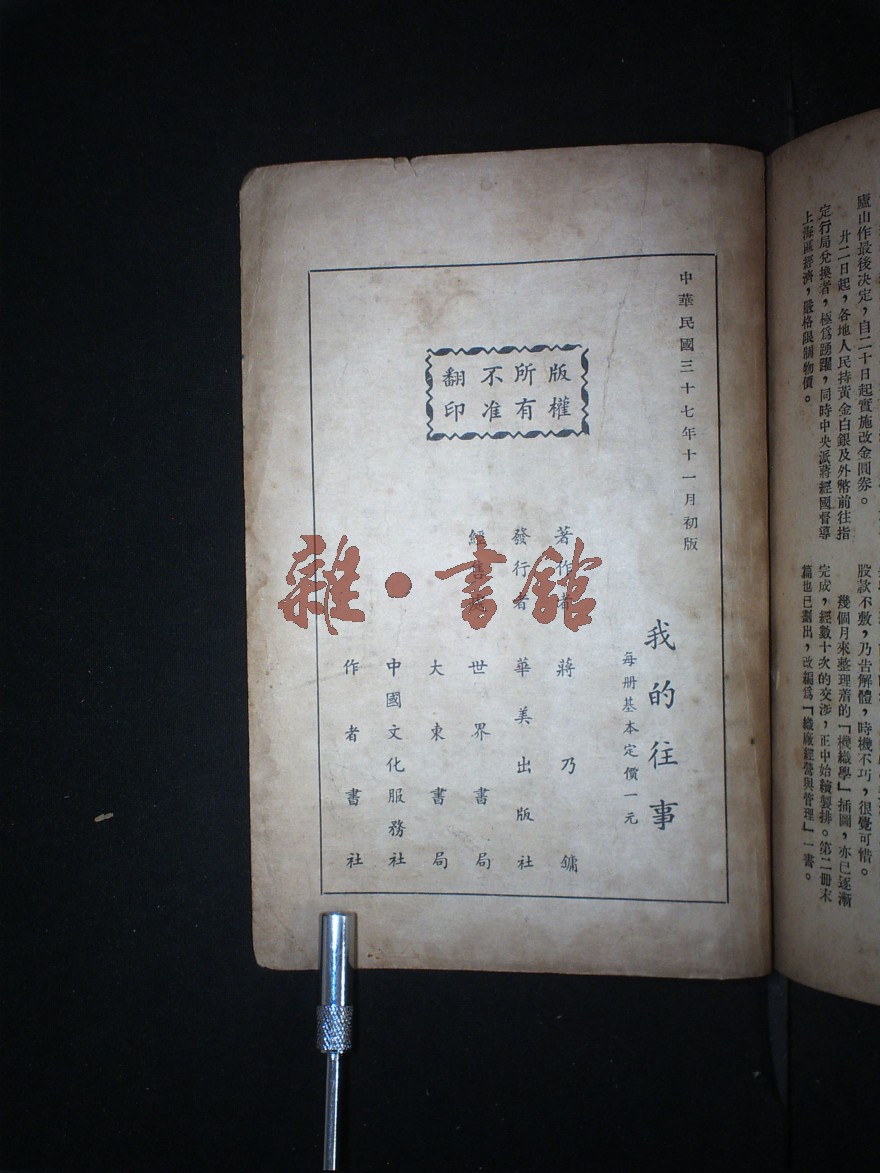 廬山作最後決定，自二十日起實施改金圓券。
廿二日起，各地人民持黃金白銀及外幣前往指
定行局兌換者，極爲踴躍，同時中央派蔣經國督導
上海區經濟，嚴格限制物價。
股款不敷，乃告解體，時機不巧，很覺可惜。
幾個月來整理着的「機織學」插圖，亦已逐漸
完成，經數十次的交涉，正中始續製排。第二冊末
篇也已劃出，改編爲「織廠經營與管理」一書。
中華民國三十七年十一月初版
版權
所有
不准
翻印
我的往事
每册基本定價一元
著作者 蔣乃鏞
發行者 華美出版社
經售處 世界書局
大東書局
中國文化服務社
作者書社
雜·書館